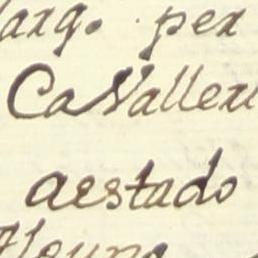 larg. per
CaVallexi
aestado